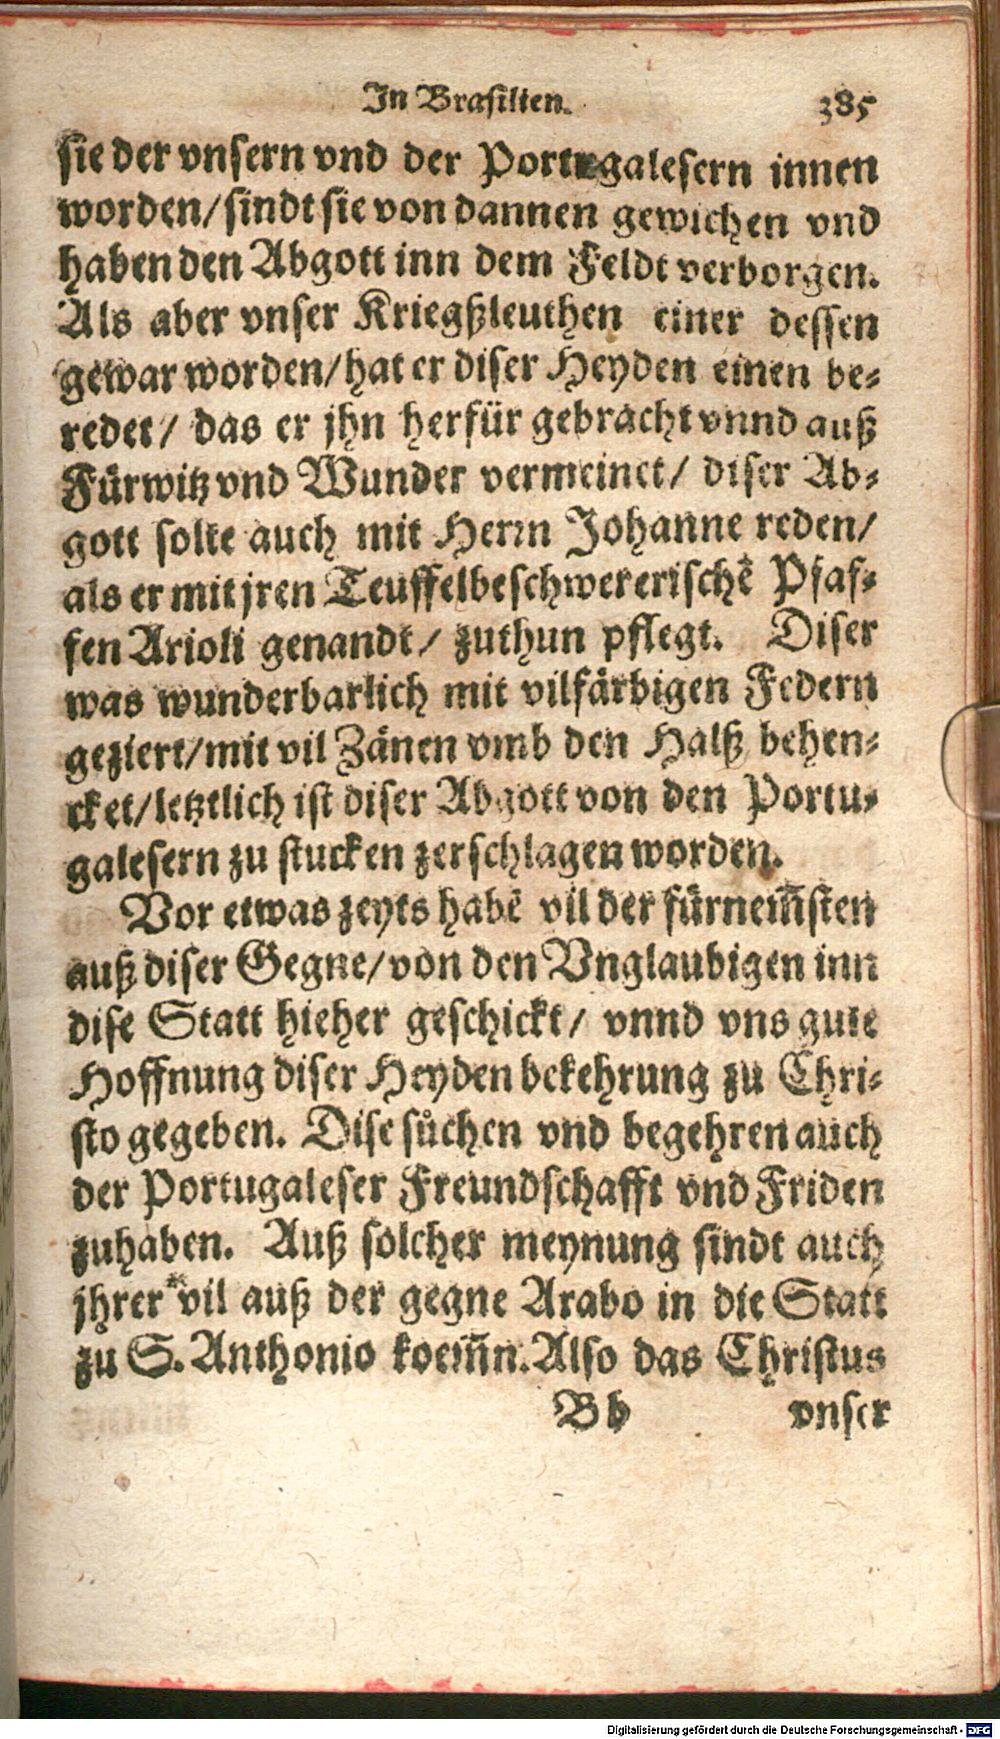 In Brasilien. 385
sie der vnsern vnd der Portugalesern innen
worden/ sindt sie von dannen gewichen vnd
haben den Abgott inn dem Feldt verborgen.
Als aber vnser Kriegßleuthen einer dessen
gewar worden/ hat er diser Heyden einen be-
redet/ das er jhn herfür gebracht vnnd auß
Fürwitz vnd Wunder vermeinet/ diser Ab-
gott solte auch mit Herrn Johanne reden/
als er mit jren Teuffelbeschwererischē Pfaf-
fen Arioli genandt/ zuthun pflegt. Diser
was wunderbarlich mit vilfärbigen Federn
geziert/ mit vil Zänen vmb den Halß behen-
cket/ letztlich ist diser Abgott von den Portu-
galesern zu stucken zerschlagen worden.
Vor etwas zeyts habē vil der fürnem̄sten
auß diser Gegne/ von den Vnglaubigen inn
dise Statt hieher geschickt/ vnnd vns gute
Hoffnung diser Heyden bekehrung zu Chri-
sto gegeben. Dise sůchen vnd begehren auch
der Portugaleser Freundschafft vnd Friden
zuhaben. Auß solcher meynung sindt auch
jhrer vil auß der gegne Arabo in die Statt
zu S. Anthonio koem̄n. Also das Christus
Bb vnser
Digitalisierung gefördert durch die Deutsche Forschungsgemeinschaft - DFG